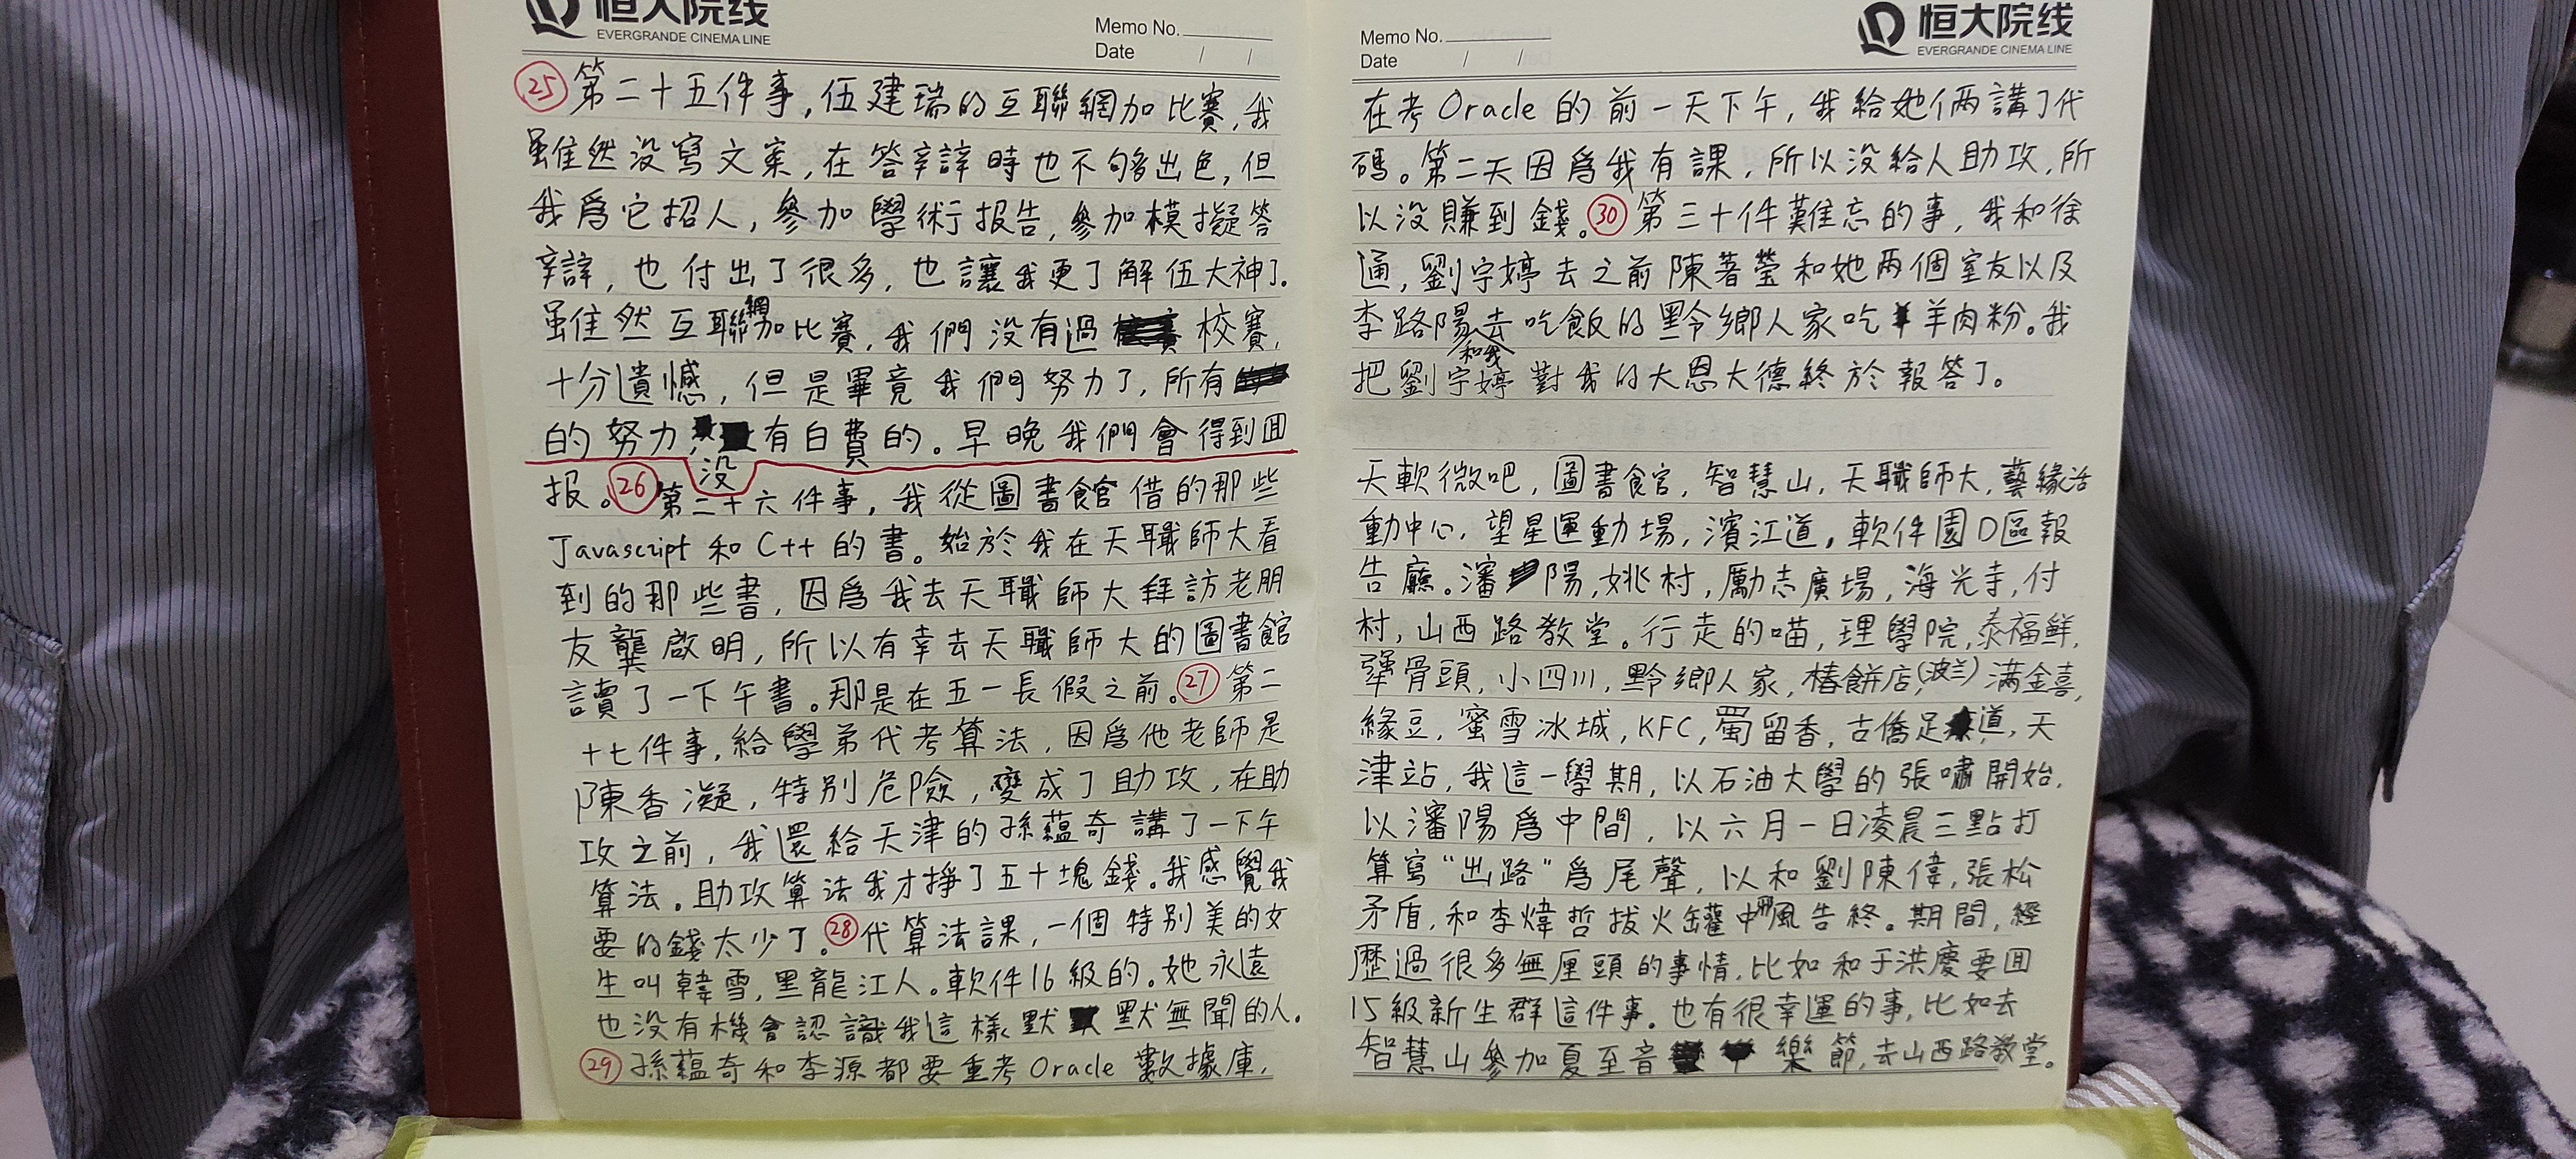 恒大院线
EVERGRANDE CINEMA LINE
Memo No.
Date / /
㉕第二十五件事,伍建瑞的互聯網加比賽,我
雖然没寫文案,在答辯時也不够出色,但
我爲它招人,參加學術报告,參加模擬答
辯,也付出了很多,也讓我更了解伍大神了.
雖然互聯網加比賽,我們没有過校賽,
十分遺憾,但是畢竟我們努力了,所有
的努力,没有白費的。早晚我們會得到囬
报。㉖第二十六件事,我從圖書館借的那些
Javascript和C++的書。始於我在天職師大看
到的那些書,因爲我去天職師大拜訪老朋
友龔啟明,所以有幸去天職師大的圖書館
讀了一下午書。那是在五一長假之前。㉗第二
十七件事,給學弟代考算法,因爲他老師是
陳香凝,特别危險,變成了助攻,在助
攻之前,我還給天津的孫蕴奇講了一下午
算法。助攻算法我才掙了五十塊錢。我感覺我
要的錢太少了。㉘代算法課,一個特别美的女
生叫韓雪,黑龍江人。軟件16級的。她永遠
也没有機會認識我這樣默默無聞的人.
㉙孫蕴奇和李源都要重考Oracle數據庫,
Memo No.
Date / /
恒大院线
EVERGRANDE CINEMA LINE
在考Oracle的前一天下午,我給她倆講了代
碼。第二天因爲我有課,所以没給人助攻,所
以没賺到錢。㉚第三十件難忘的事,我和徐
通,劉宇婷去之前陳著瑩和她两個室友以及
李路陽和我去吃飯的黔鄉人家吃羊肉粉。我
把劉宇婷對我的大恩大德終於報答了。
天軟微吧,圖書館,智慧山,天職師大,藝緣活
動中心,望星運動場,濱江道,軟件園D區報
告廳。瀋陽,姚村,勵志廣場,海光寺,付
村,山西路教堂。行走的喵,理學院,泰福鲜,
犟骨頭,小四川,黔鄉人家,椿餅店,(波兰)满金喜,
緣豆,蜜雪冰城,KFC,蜀留香,古僑足道,天
津站,我這一學期,以石油大學的張嘯開始,
以瀋陽爲中間,以六月一日凌晨三點打
算寫“出路”爲尾聲,以和劉陳偉,張松
矛盾,和李煒哲拔火罐中風告終。期間,經
歷過很多無厘頭的事情,比如和于洪慶要囬
15級新生群這件事。也有很幸運的事,比如去
智慧山參加夏至音樂節,去山西路教堂。